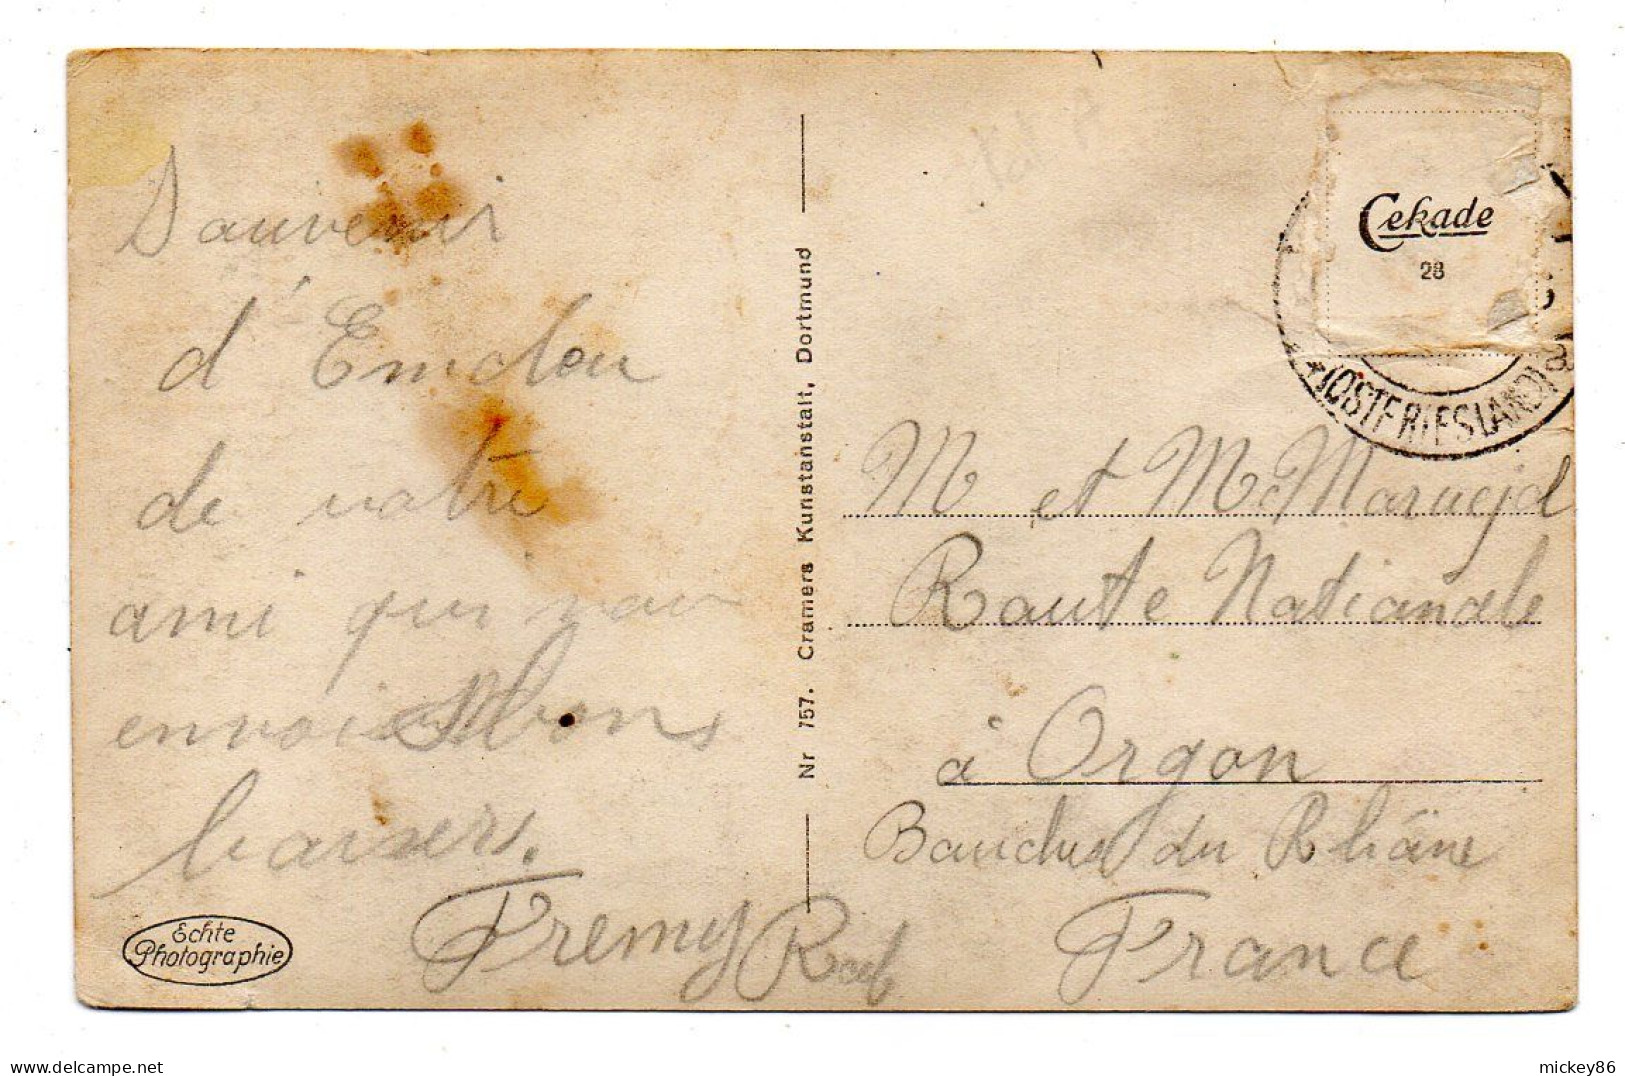 Souvenir
d'Emden
de votre
ami qui vous
envois bons
baisers.
Fremy
Echte
Photographie
Nr 757. Cramers Kunstanstalt, Dortmund
Cekade
28
(OSTFRIESLAND)
M et Mm Maruejol
Route Nationale
à Orgon
Bouches du Rhône
France
mickey86